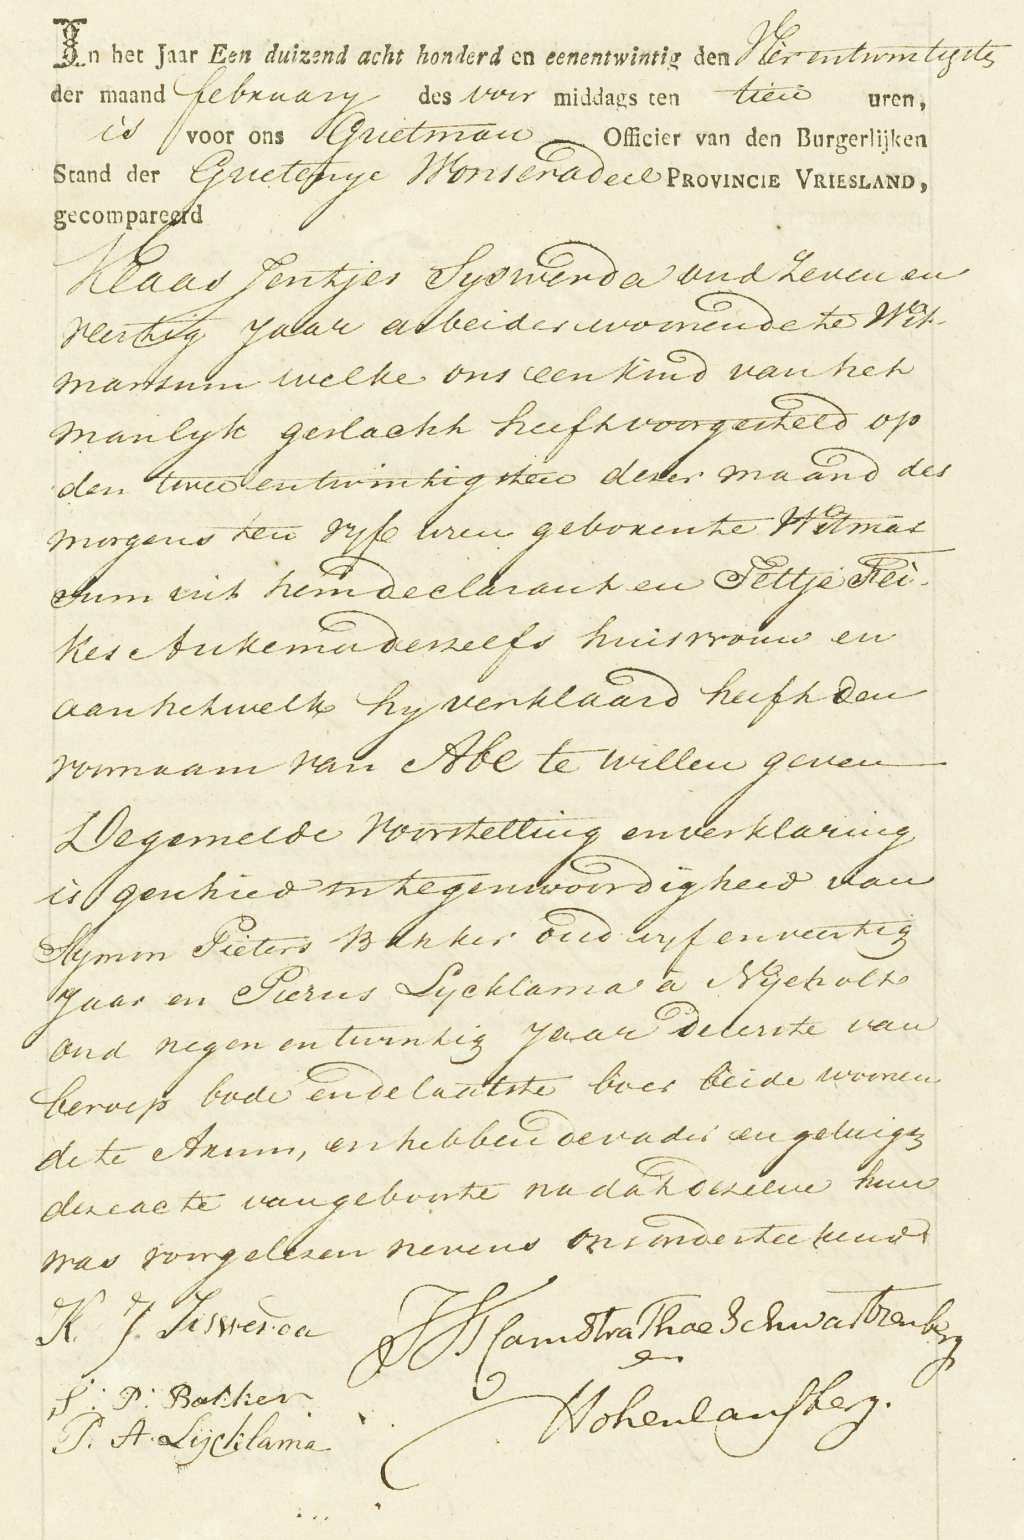 In het Jaar Een duizend acht honderd en eenentwintig den Vierentwintigste
der maand february des voor middags ten tien uren,
is voor ons Grietman Officier van den Burgerlijken
Stand der Grietenye Wonseradeel PROVINCIE VRIESLAND,
gecompareerd
Klaas Jentjes Syswerda oud Zeven en
veertig Jaar arbeider woonende te Wit-
marsum welke ons een kind van het
manlyk geslacht heeft voorgesteld op
den twee entwintigsten dezer maand des
morgens ten vyf uren geboren te Witmar
sum uit hem declarant en Tettje Fei-
kes Aukema deszelfs huisvrouw en
aan hetwelk hy verklaard heeft den
voornaam van Abe te willen geven
De gemelde Voorstelling en verklaring
is geschied in tegenwoordigheid van
Symon Pieters Bakker oud vyf en veertig
Jaar en Pierus Lycklama à Nyeholt
oud negen en twintig Jaar de eerste van
beroep bode en de laatste boer beide woonen
de te Arum, en hebben de vader en getuigen
deze acte van geboorte na dat dezelve hun
was voorgelezen nevens ons onderteekend
K. J. Siswerda
JS Camstra Thoe Schwartzenberg
en
S: P: Bakker
Hohenlansberg.
P. A. Lijcklama